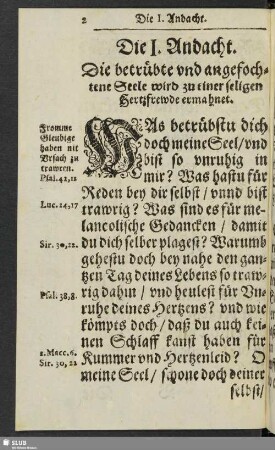 2 Die I. Andacht.
Die I. Andacht.
Die betrübte vnd angefoch-
tene Seele wird zu einer seligen
Hertzfrewde ermahnet.
Fromme
Gleubige
haben nit
Vrsach zu
trawren.
Psal. 42,12
WAs betrübstu dich
doch meine Seel/vnd
bist so vnruhig in
mir? Was hastu für
Reden bey dir selbst/ vnnd bist
Luc. 24,17
trawrig? Was sind es für me-
lancolische Gedancken / damit
Sir. 30,22.
du dich selber plagest? Warumb
gehestu doch bey nahe den gan-
tzen Tag deines Lebens so traw-
Psal. 38,8.
rig dahin / vnd heulest für Vn-
ruhe deines Hertzens? vnd wie
kömpts doch/ daß du auch kei-
nen Schlaff kanst haben für
1. Macc. 6.
Sir. 30, 22
Kummer vnd Hertzenleid? O
meine Seel/ schone doch deiner
selbst/
SLUB